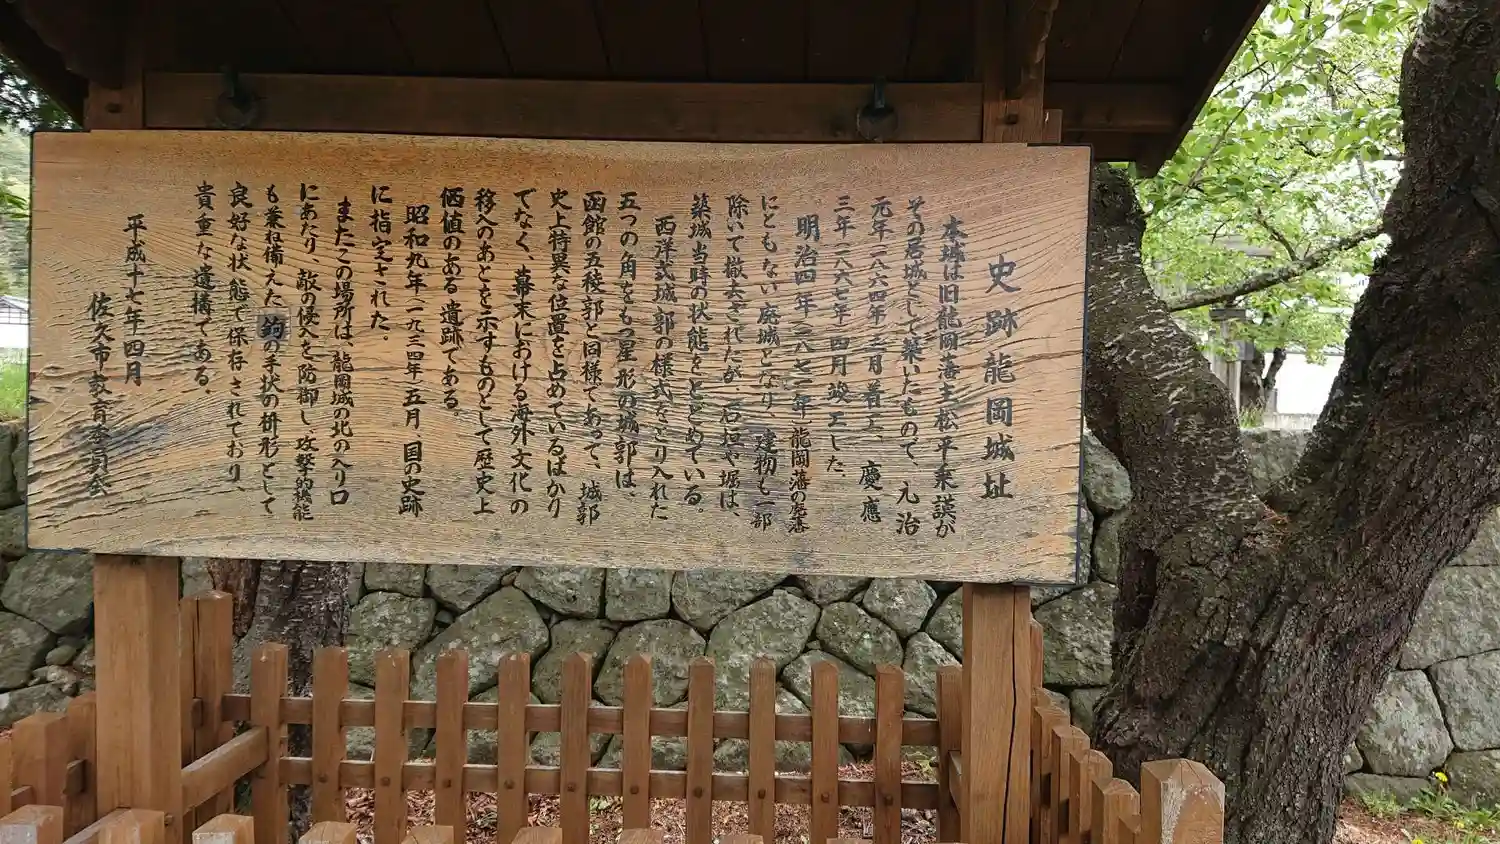 史跡龍岡城址
本城は旧龍岡藩主松平乗謨が
その居城として築いたもので、元治
元年(一八六四年)三月着工、慶應
三年(一八六七年)四月竣工した。
明治四年(一八七一年)龍岡藩の廃藩
にともない廃城となり、建物も一部
除いて撤去されたが、石垣や堀は、
築城当時の状態をとどめている。
西洋式城郭の様式をとり入れた
五つの角をもつ星形の城郭は、
函館の五稜郭と同様であって、城郭
史上特異な位置を占めているばかり
でなく、幕末における海外文化の
移入のあとを示すものとして歴史上
価値のある遺跡である。
昭和九年(一九三四年)五月 国の史跡
に指定された。
またこの場所は、龍岡城の北の入り口
にあたり、敵の侵入を防御し、攻撃的機能
も兼ね備えた鉤の手状の枡形として
良好な状態で保存されており、
貴重な遺構である。
平成十七年四月
佐久市教育委員会